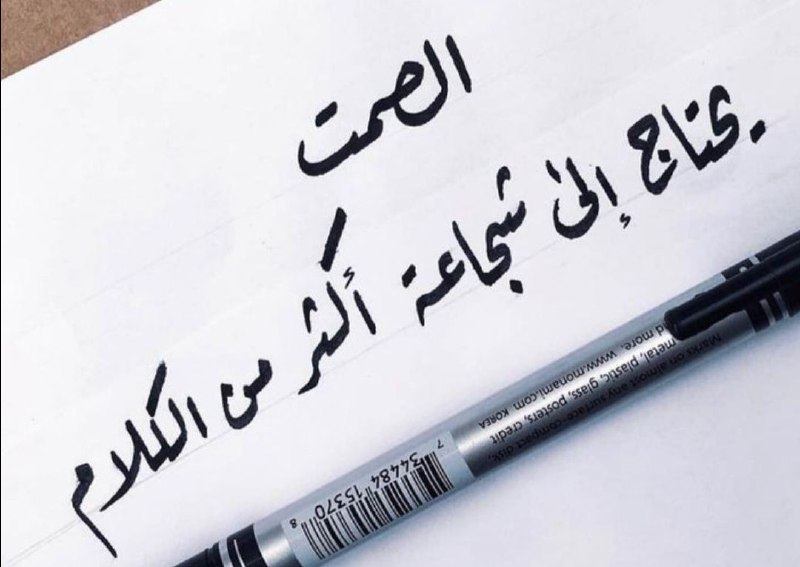 الصمت
يحتاج إلى شجاعة
أكثر من الكلام
Marks on almost any surface: compact disc,
metal, plastic, glass, posters, credit
and more. www.monami.com KOREA
7 34484 15370 8